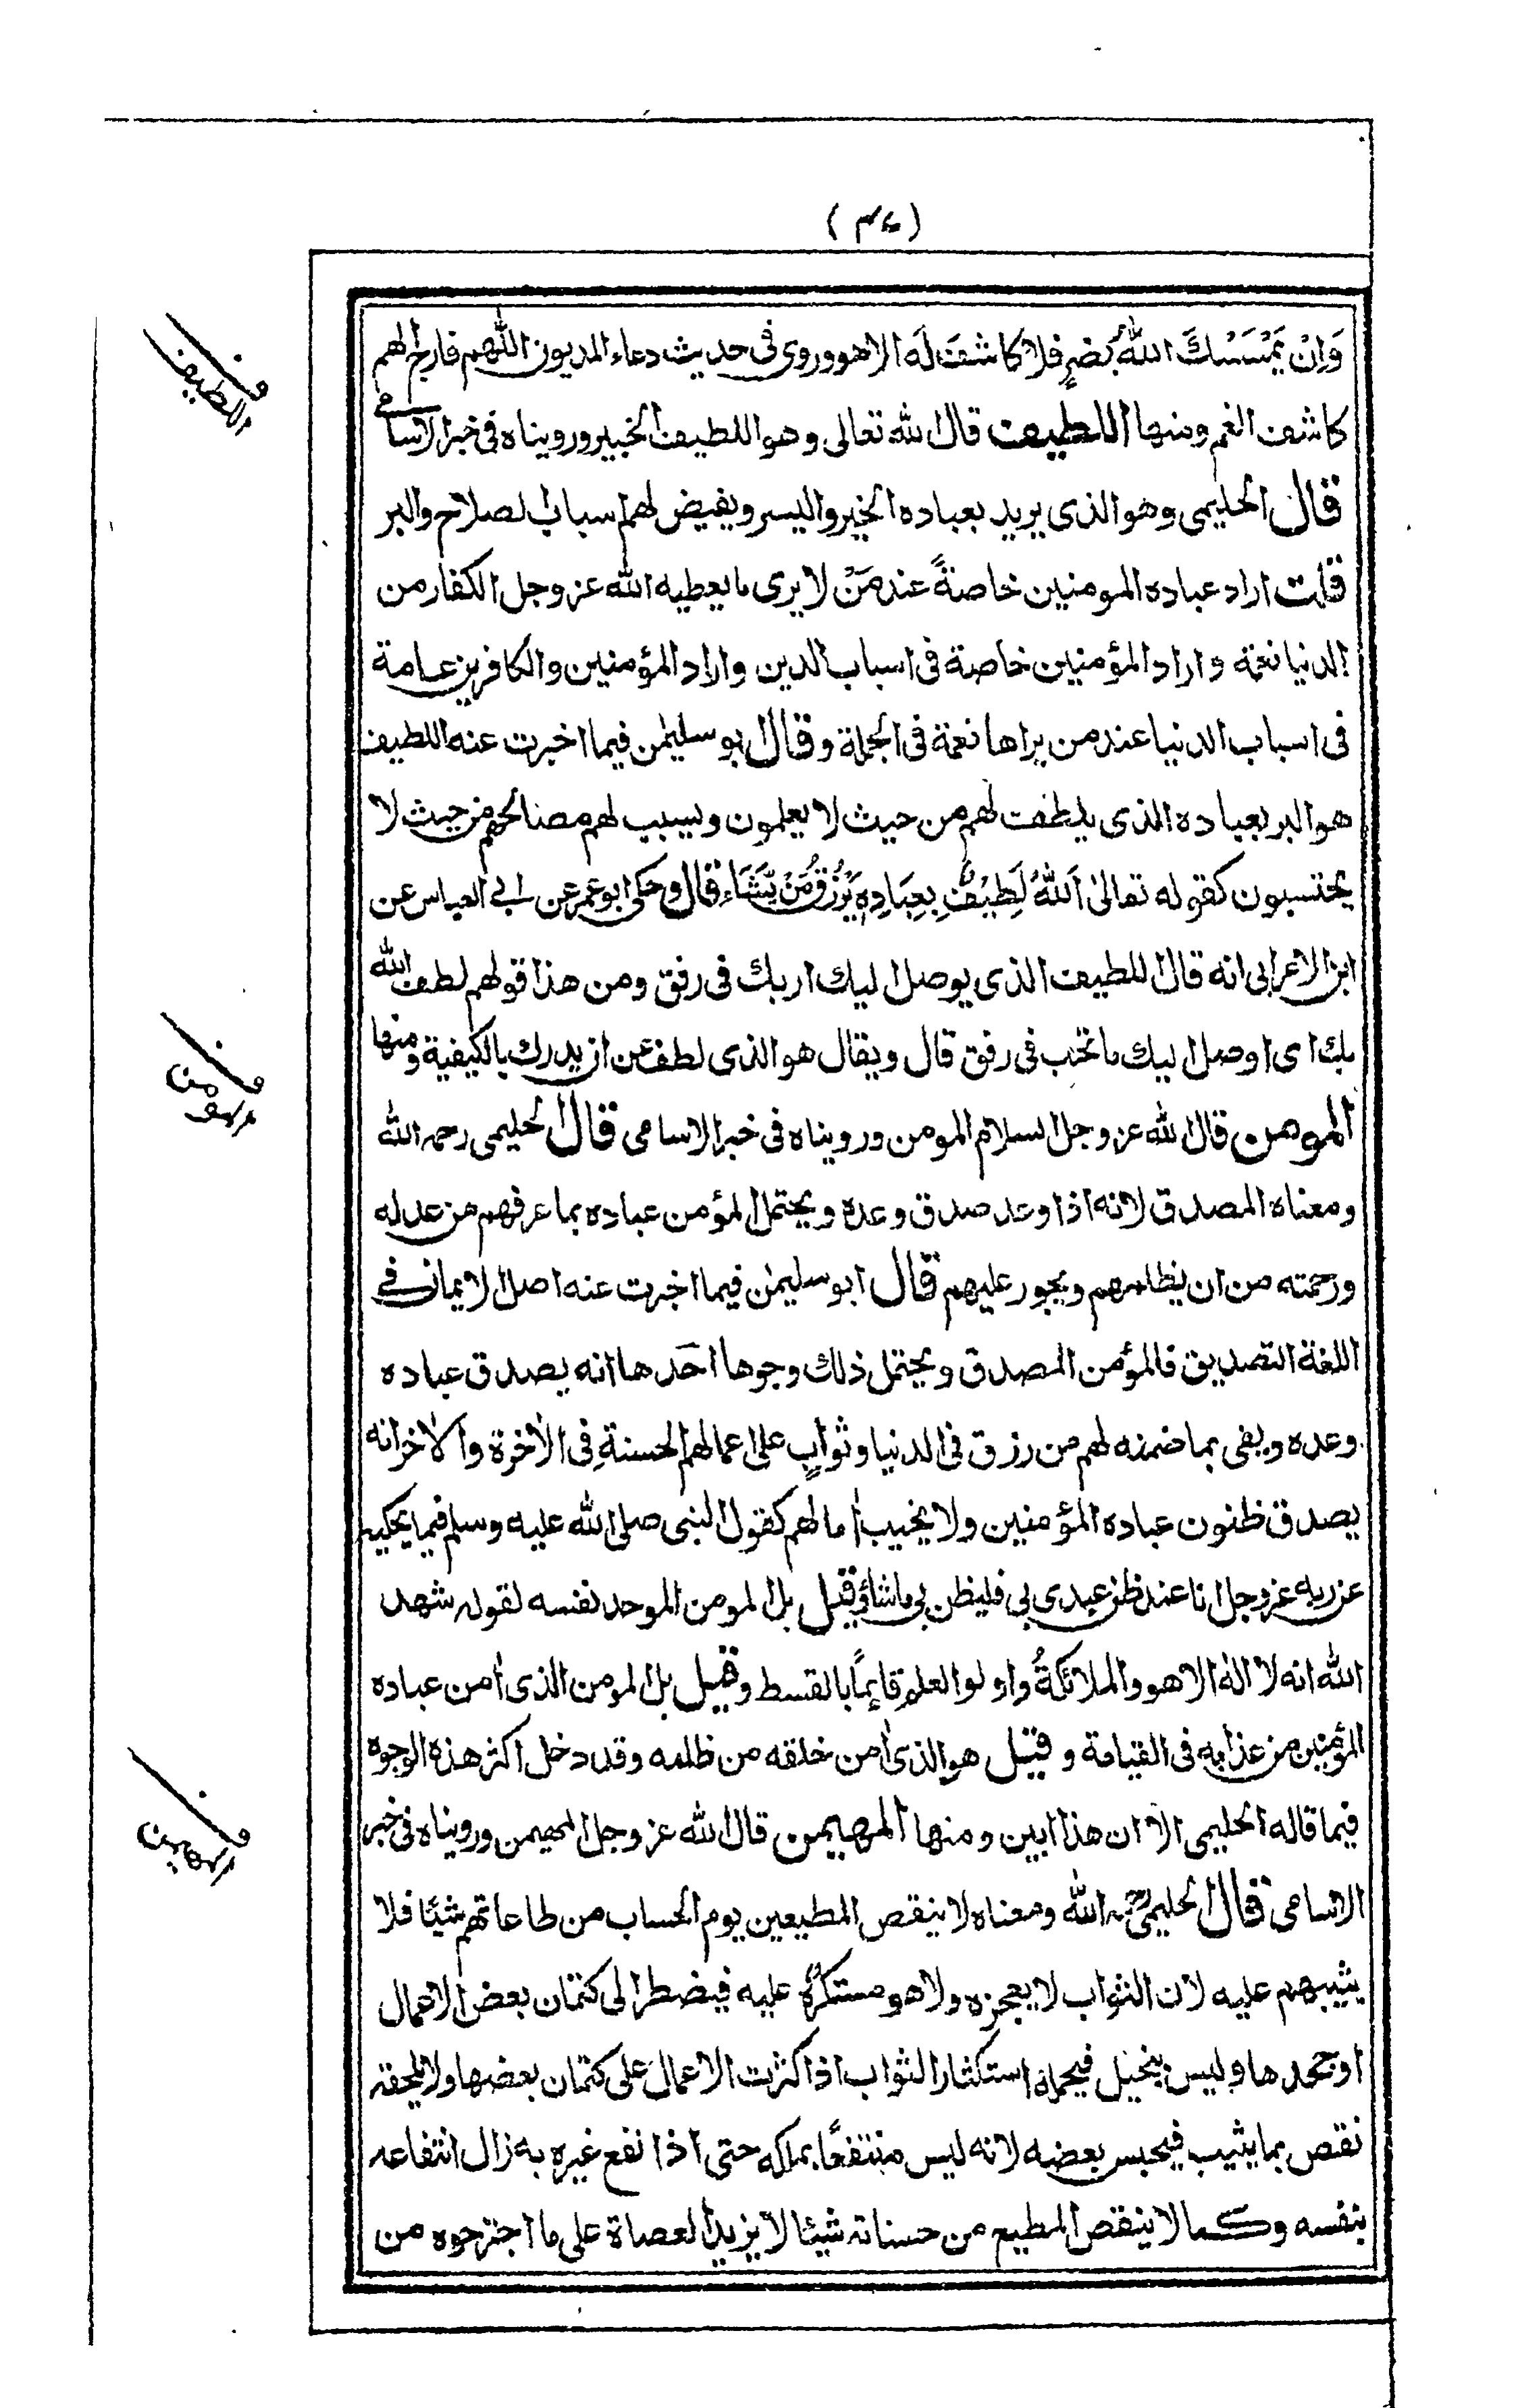 (٤٦)
وَاِنْ يَمْسَسْكَ اللهُ بضرٍ فلا كاشفَ لَه الا هو وروى فى حديث دعاء المديون اللهم فارج الهم
كاشف الغم ومنها اللطيف قال الله تعالى وهو اللطيف الخبير ورويناه فى خبر الاسامى
قال الحليمى وهو الذى يريد بعباده الخير واليسر ويفيض لهم اسباب الصلاح والبر
قلت اراد عباده المومنين خاصةً عند مَنْ لا يرى ما يعطيه الله عز وجل الكفار من
الدنيا نعمة واراد المؤمنين خاصة فى اسباب الدين واراد المؤمنين والكافرين عامة
فى اسباب الدنيا عند من يراها نعمة فى الجملة وقال ابو سليمٰن فيما اخبرت عنه اللطيف
هو البر بعباده الذى يلطف لهم من حيث لا يعلمون ويسبب لهم مصالحهم من حيث لا
يحتسبون كقوله تعالىٰ اَللهُ لَطِيْفٌ بِعِبَادِهٖ يَرْزُقُ مَنْ يَّشَاءُ قال وحكى ابو عمر عن ابى العباس عن
ابن الاعرابى انه قال اللطيف الذى يوصل اليك اربك فى رفق ومن هذا قولهم لطف الله
بك اى اوصل اليك ما تحب فى رفق قال ويقال هو الذى لطف عن ان يدرك بالكيفية ومنها
المومن قال الله عز وجل السلام المومن ورويناه فى خبر الاسامى قال الحليمى رحمه الله
ومعناه المصدق لانه اذا وعد صدق وعده ويحتمل المؤمن عباده بما عرفهم من عدله
ورحمته من ان يظلمهم ويجور عليهم قال ابو سليمٰن فيما اخبرت عنه اصل الايمان فى
اللغة التصديق فالمؤمن المصدق ويحتمل ذلك وجوها احَدها انه يصدق عباده
وعده ويفى بما ضمنه لهم من رزق فى الدنيا وثوابٍ على اعمالهم الحسنةِ فى الاٰخرة والاٰخر انه
يصدق ظنون عباده المؤمنين ولا يخيب اٰمالهم كقول النبى صلى الله عليه وسلم فيما يحكيه
عن ربه عز وجل انا عند ظن عبدى بى فليظن بى ماشاء وقيل بل المومن الموحد نفسه لقوله شهد
الله انه لا اله الا هو والملائكةُ واولوا العلمِ قائمًا بالقسط وقيل بل المومن الذى اٰمن عباده
المؤمنين من عذابه فى القيامة وقيل هو الذى اٰمن خلقه من ظلمه وقد دخل اكثر هذه الوجوه
فيما قاله الحليمى الا ان هذا ابين ومنها المهيمن قال الله عز وجل المهيمن ورويناه فى خبر
الاسامى قال الحليمى رحمه الله ومعناه لا ينقص المطيعين يوم الحساب من طاعاتهم شيئا فلا
يثيبهم عليه لان الثواب لا يعجزه ولا هو مستكرَهٌ عليه فيضطر الى كتمان بعض الاعمال
او جحدها وليس ببخيل فيحمله استكثار الثواب اذا كثرت الاعمال على كتمان بعضها ولا يلحقه
نقص بما يثيب فيحبس بعضه لانه ليس منتفعًا بملكه حتى اذا نفع غيره به زال انتفاعه
بنفسه وكما لا ينقص المطيع من حسناته شيئا لا يزيد العصاة على ما اجترحوه من
اللطيف
المومن
المهيمن